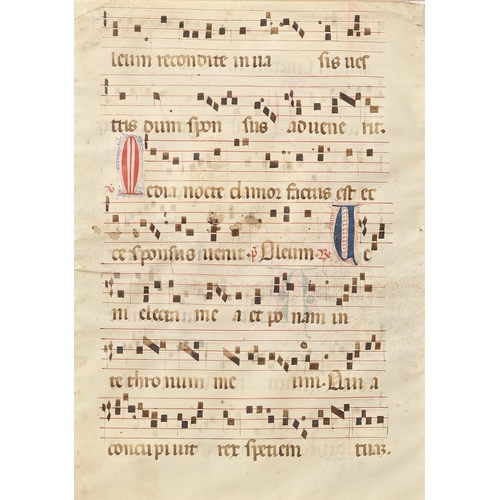 leum recondite in ua sis ues
tris dum spon sus aduene rit.
℣ Media nocte clamor factus est et
ce sponsus uenit. p̄ Oleum. ℟ Ue
ni electa me a et po nam in
te thro num me um. Quia
concupiuit rex speciem tuaz.